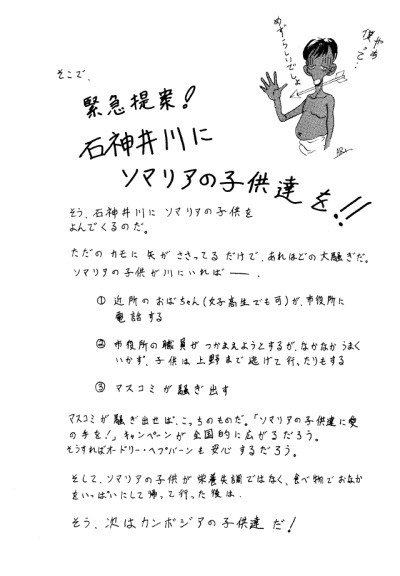 僕やあ
って…
めずらしいでしょ
そこで、
緊急提案！
石神井川に
ソマリアの子供達を！！
そう、石神井川に ソマリアの子供を
よんでくるのだ。
ただの カモに 矢が ささってる だけで、あれほどの 大騒ぎだ。
ソマリアの 子供が 川にいれば ――.
① 近所の おばちゃん（女子高生でも可）が、市役所に
電話する
② 市役所の 職員が つかまえようとするが、なかなか うまく
いかず、子供は 上野まで 逃げて 行、たりもする
③ マスコミが 騒ぎ出す
マスコミが 騒ぎ出せば、こっちのものだ。「ソマリアの子供達に愛
の手を！」キャンペーンが 全国的に広がるだろう。
そうすればオードリー・ヘプバーンも 安心 するだろう。
そして、ソマリアの 子供が 栄養失調ではなく、食べ物でおなか
をいっぱいにして 帰って 行った 後は、
そう、次はカンボジアの子供達 だ！